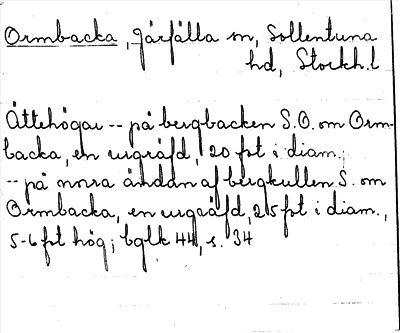 Ormbacka, Järfälla sn, Sollentuna
hd, Stockh.l
Ättehögar -- på bergbacken S.O. om Orm-
backa, en urgräfd, 20 fot i diam.;
-- på norra ändan af bergkullen S. om
Ormbacka, en urgräfd, 25 fot i diam.,
5-6 fot hög; bglk 44, s. 34